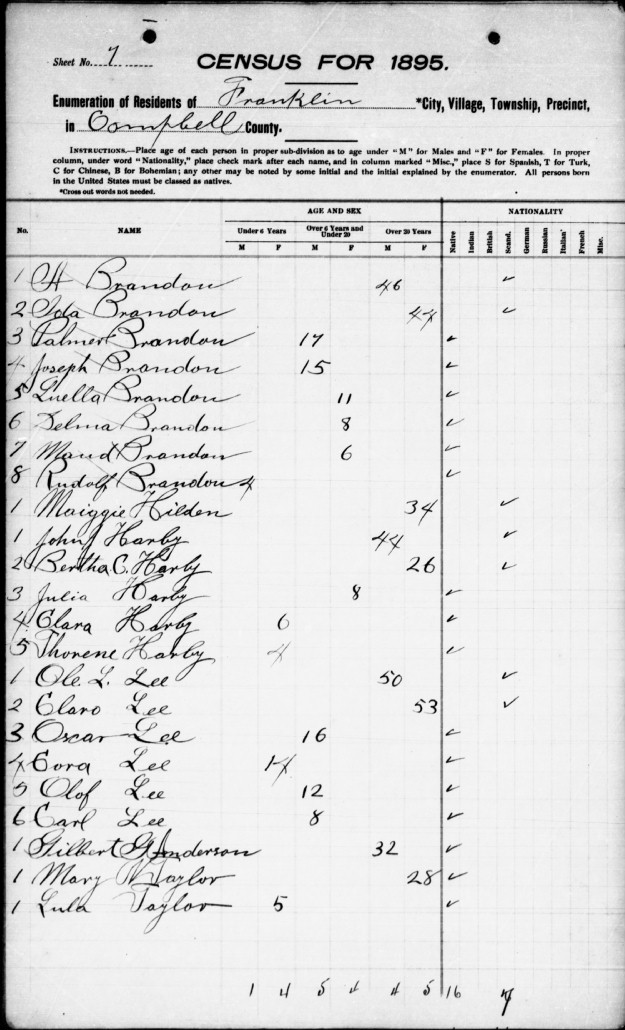 Sheet No. 7
CENSUS FOR 1895.
Enumeration of Residents of Franklin *City, Village, Township, Precinct,
in Campbell County.
INSTRUCTIONS.—Place age of each person in proper sub-division as to age under "M" for Males and "F" for Females. In proper
column, under word "Nationality," place check mark after each name, and in column marked "Misc.," place S for Spanish, T for Turk,
C for Chinese, B for Bohemian; any other may be noted by some initial and the initial explained by the enumerator. All persons born
in the United States must be classed as natives.
*Cross out words not needed.
AGE AND SEX NATIONALITY
No. NAME Under 6 Years Over 6 Years and Under 20 Over 20 Years Native Indian British Scand. German Russian Italian French Misc.
M F M F M F
1 H Brandon 46 ✓
2 Ida Brandon 44 ✓
3 Palmer Brandon 17 ✓
4 Joseph Brandon 15 ✓
5 Luella Brandon 11 ✓
6 Delma Brandon 8 ✓
7 Maud Brandon 6 ✓
8 Rudolf Brandon 4 ✓
1 Maiggie Hilden 34 ✓
1 John J Harby 44 ✓
2 Bertha C. Harby 26 ✓
3 Julia Harby 8 ✓
4 Clara Harby 6 ✓
5 Thorene Harby 4 ✓
1 Ole. L. Lee 50 ✓
2 Claro Lee 53 ✓
3 Oscar Lee 16 ✓
4 Cora Lee 14 ✓
5 Olof Lee 12 ✓
6 Carl Lee 8 ✓
1 Gilbert G Anderson 32 ✓
1 Mary Taylor 28 ✓
1 Lula Taylor 5 ✓
1 4 5 4 4 5 16 7